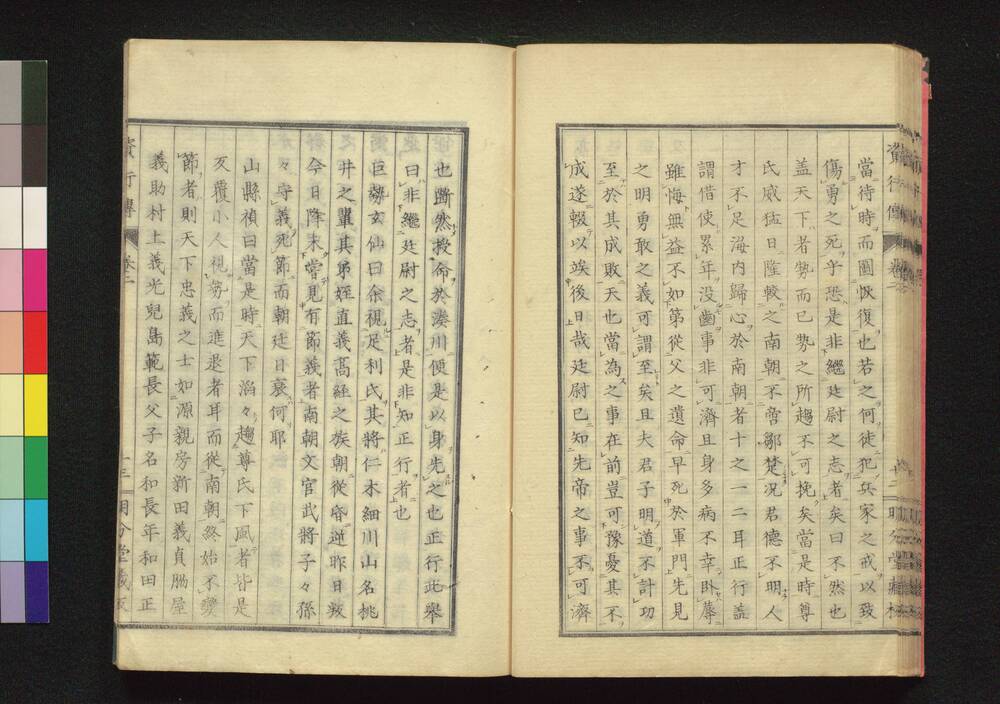 當待時而圖恢復也若之何徒犯兵家之戒以致
傷勇之死乎恐是非繼廷尉之志者矣曰不然也
盖天下者勢而已勢之所趨不可挽矣當是時尊
氏威猛日隆較之南朝不啻鄒楚况君德不明人
才不足海内歸心於南朝者十之一二耳正行盖
謂借使累年没齒事非可濟且身多病不幸臥蓐
雖悔無益不如第從父之遺命早死於軍門先見
之明勇敢之義可謂至矣且夫君子明道不計功
至於其成敗天也當為之事在前豈可豫憂其不
成遂輟以竢後日哉廷尉已知先帝之事不可濟
也斷然授命於湊川便是以身先之也正行此舉
曰非繼廷尉之志者是非知正行者也
巨勢玄仙曰余視足利氏其將仁木細川山名桃
井之輩其弟姪直義高經之族朝從昏逆昨日叛
今日降未嘗見有節義者南朝文官武將子々孫
々守義死節而朝廷日衰何耶
山縣禎曰當是時天下滔々趨尊氏下風者皆是
反覆小人視勢而進退者耳而從南朝終始不變
節者則天下忠義之士如源親房新田義貞脇屋
義助村上義光兒島範長父子名和長年和田正
資行傳 卷二
十三 明分堂藏板